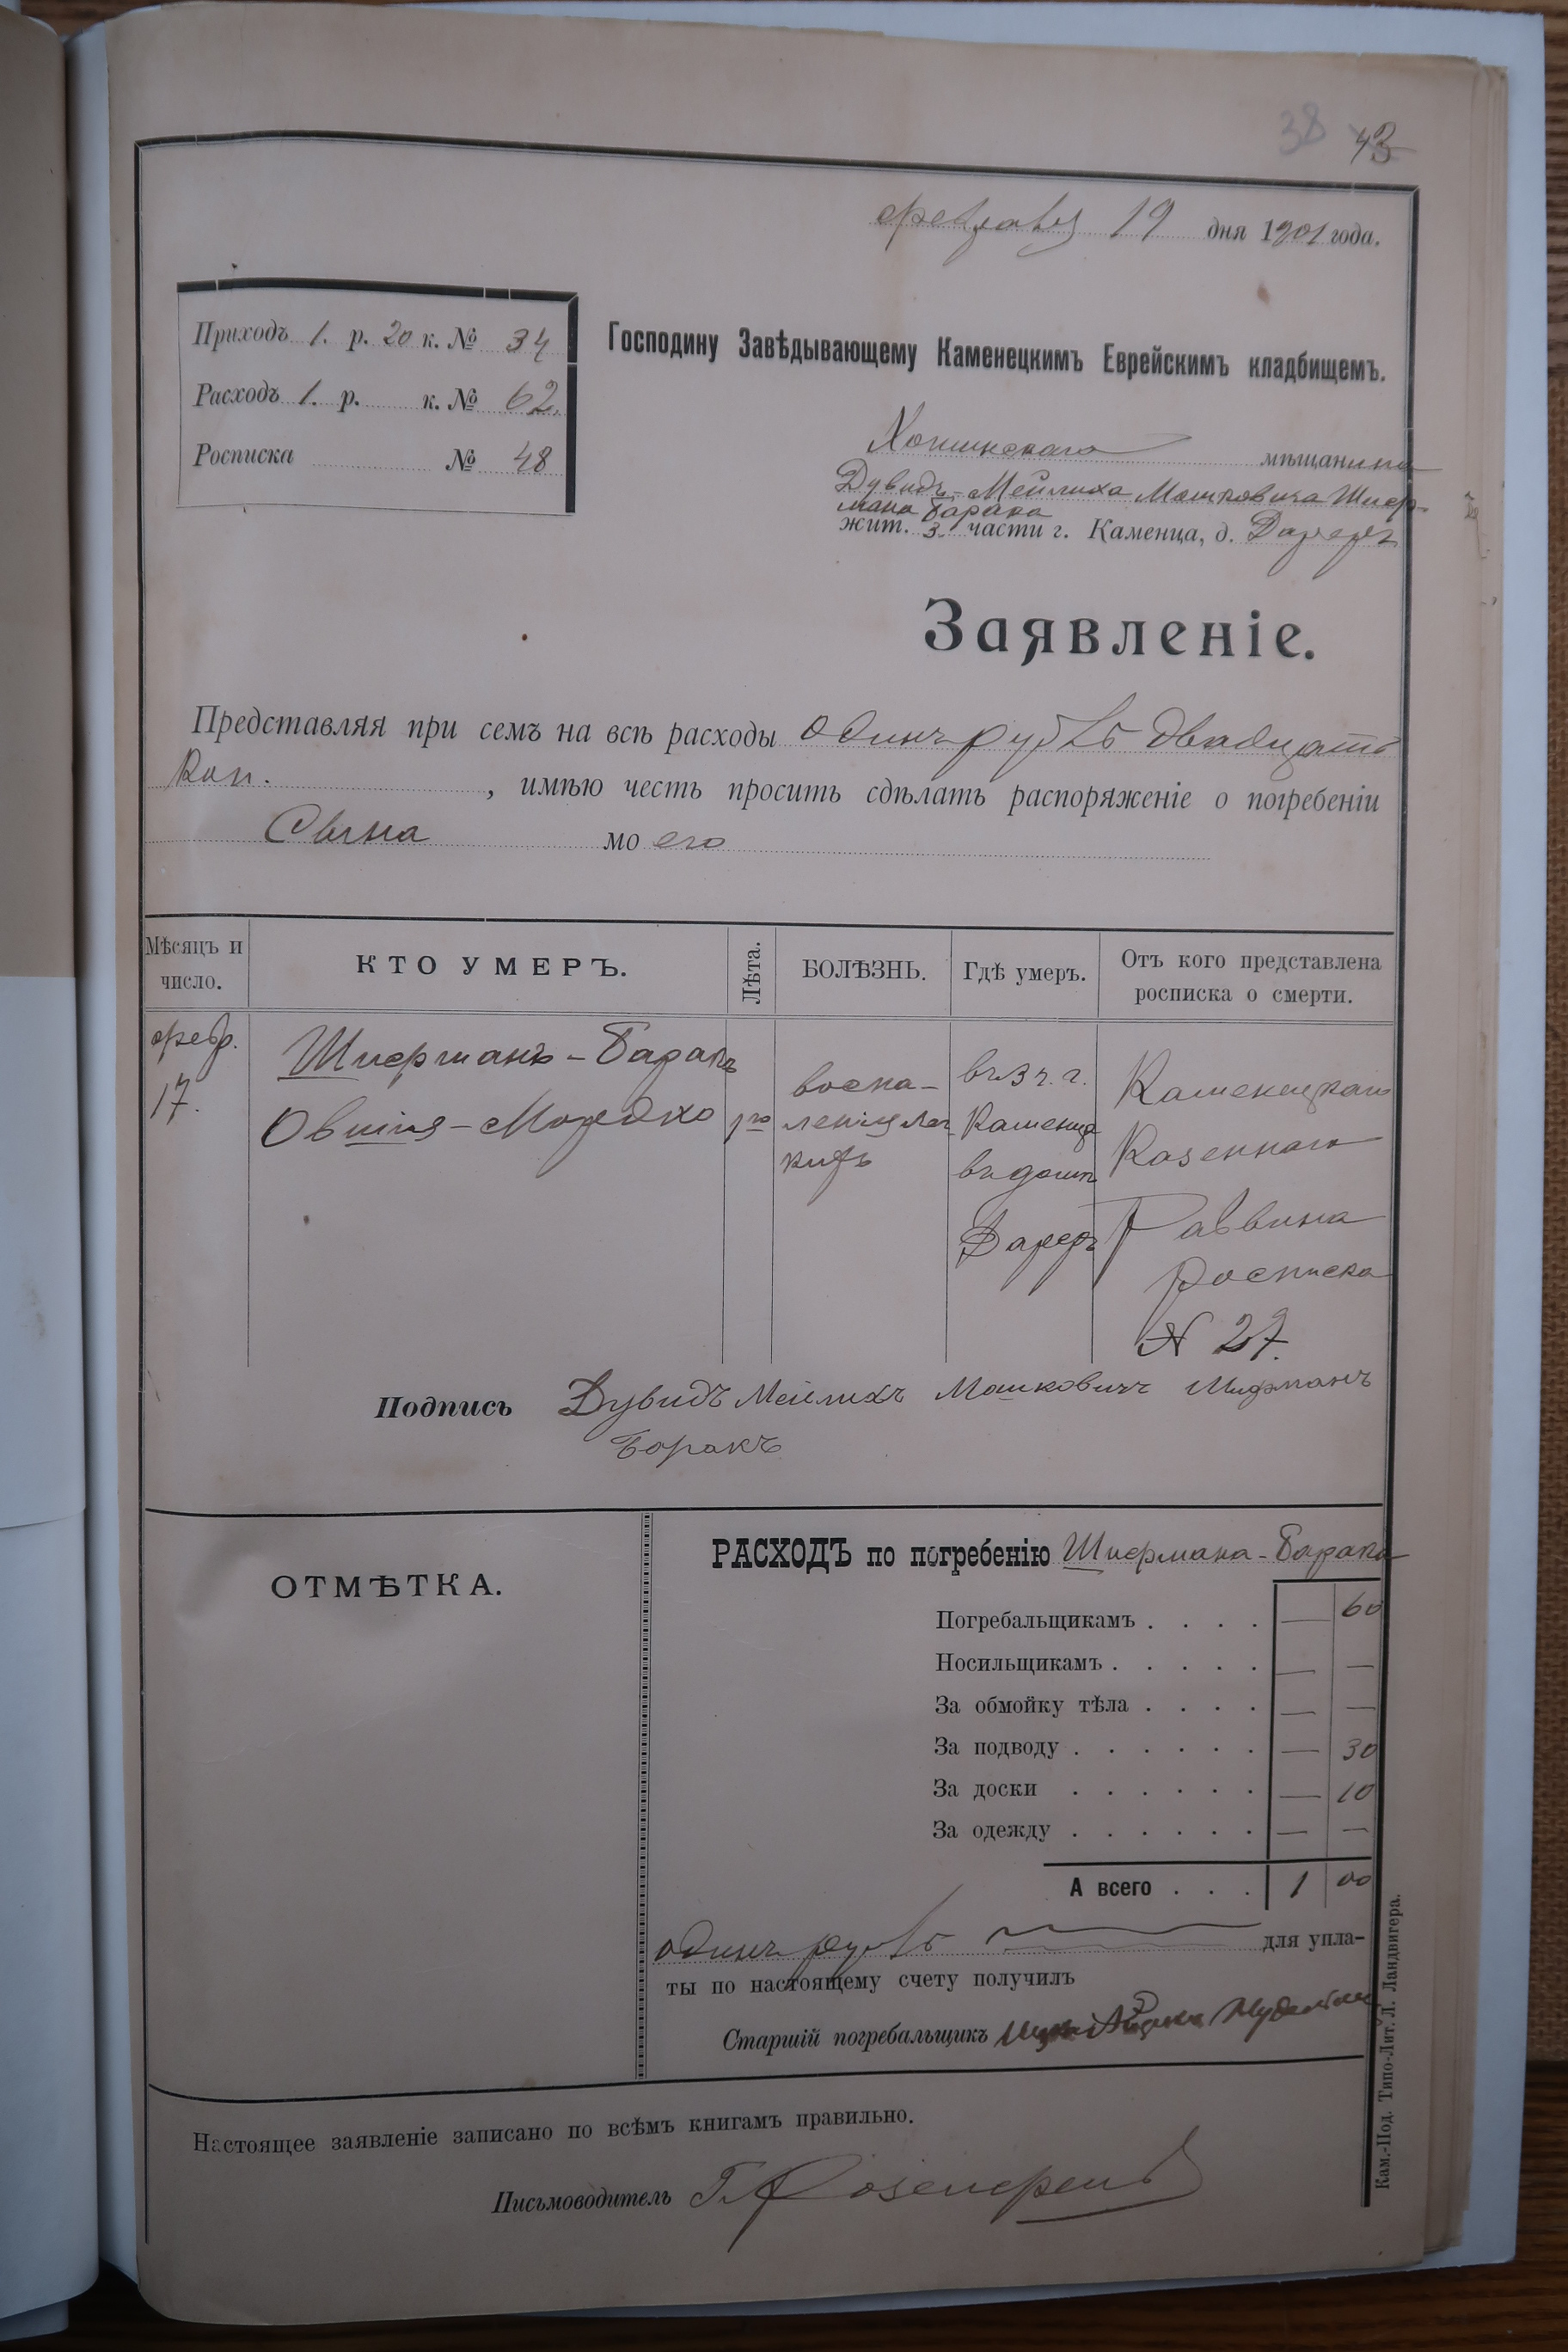 38 43
февраля 19 дня 1901 года.
Приходъ 1. р. 20 к. № 34
Расходъ 1. р. к. № 62.
Росписка № 48
Господину Завѣдывающему Каменецкимъ Еврейскимъ кладбищемъ.
мѣщанина
Дувидъ-Мейлиха Мошковича Шиер-
мана Барака
жит. 3. части г. Каменца, д.
Заявленіе.
Представляя при семъ на всѣ расходы одинъ рубль двадцать
коп. , имѣю честь просить сдѣлать распоряженіе о погребеніи
Сына моего
Мѣсяцъ и число.
КТО УМЕРЪ.
Лѣта.
БОЛѢЗНЬ.
Гдѣ умеръ.
Отъ кого представлена росписка о смерти.
февр.
17.
Шиерманъ-Баракъ
Овшія-Мордко
1го
воспа-
леніе лег
кихъ
въ 3 ч. г.
Каменца
въ домѣ
Каменецкаго
Казеннаго
Раввина
росписка
№ 27.
Подпись Дувидъ Мейлихъ Мошковичъ
Боракъ
ОТМѢТКА.
РАСХОДЪ по погребенію Шиермана-Барака
Погребальщикамъ . . . . — 60
Носильщикамъ . . . . . — —
За обмойку тѣла . . . . — —
За подводу . . . . . . — 30
За доски . . . . . . — 10
За одежду . . . . . . — —
А всего . . . 1 00
одинъ рубль для упла-
ты по настоящему счету получилъ
Старшій погребальщикъ
Настоящее заявленіе записано по всѣмъ книгамъ правильно.
Письмоводитель
Кам.-Под. Типо-Лит. Л. Ландвигера.